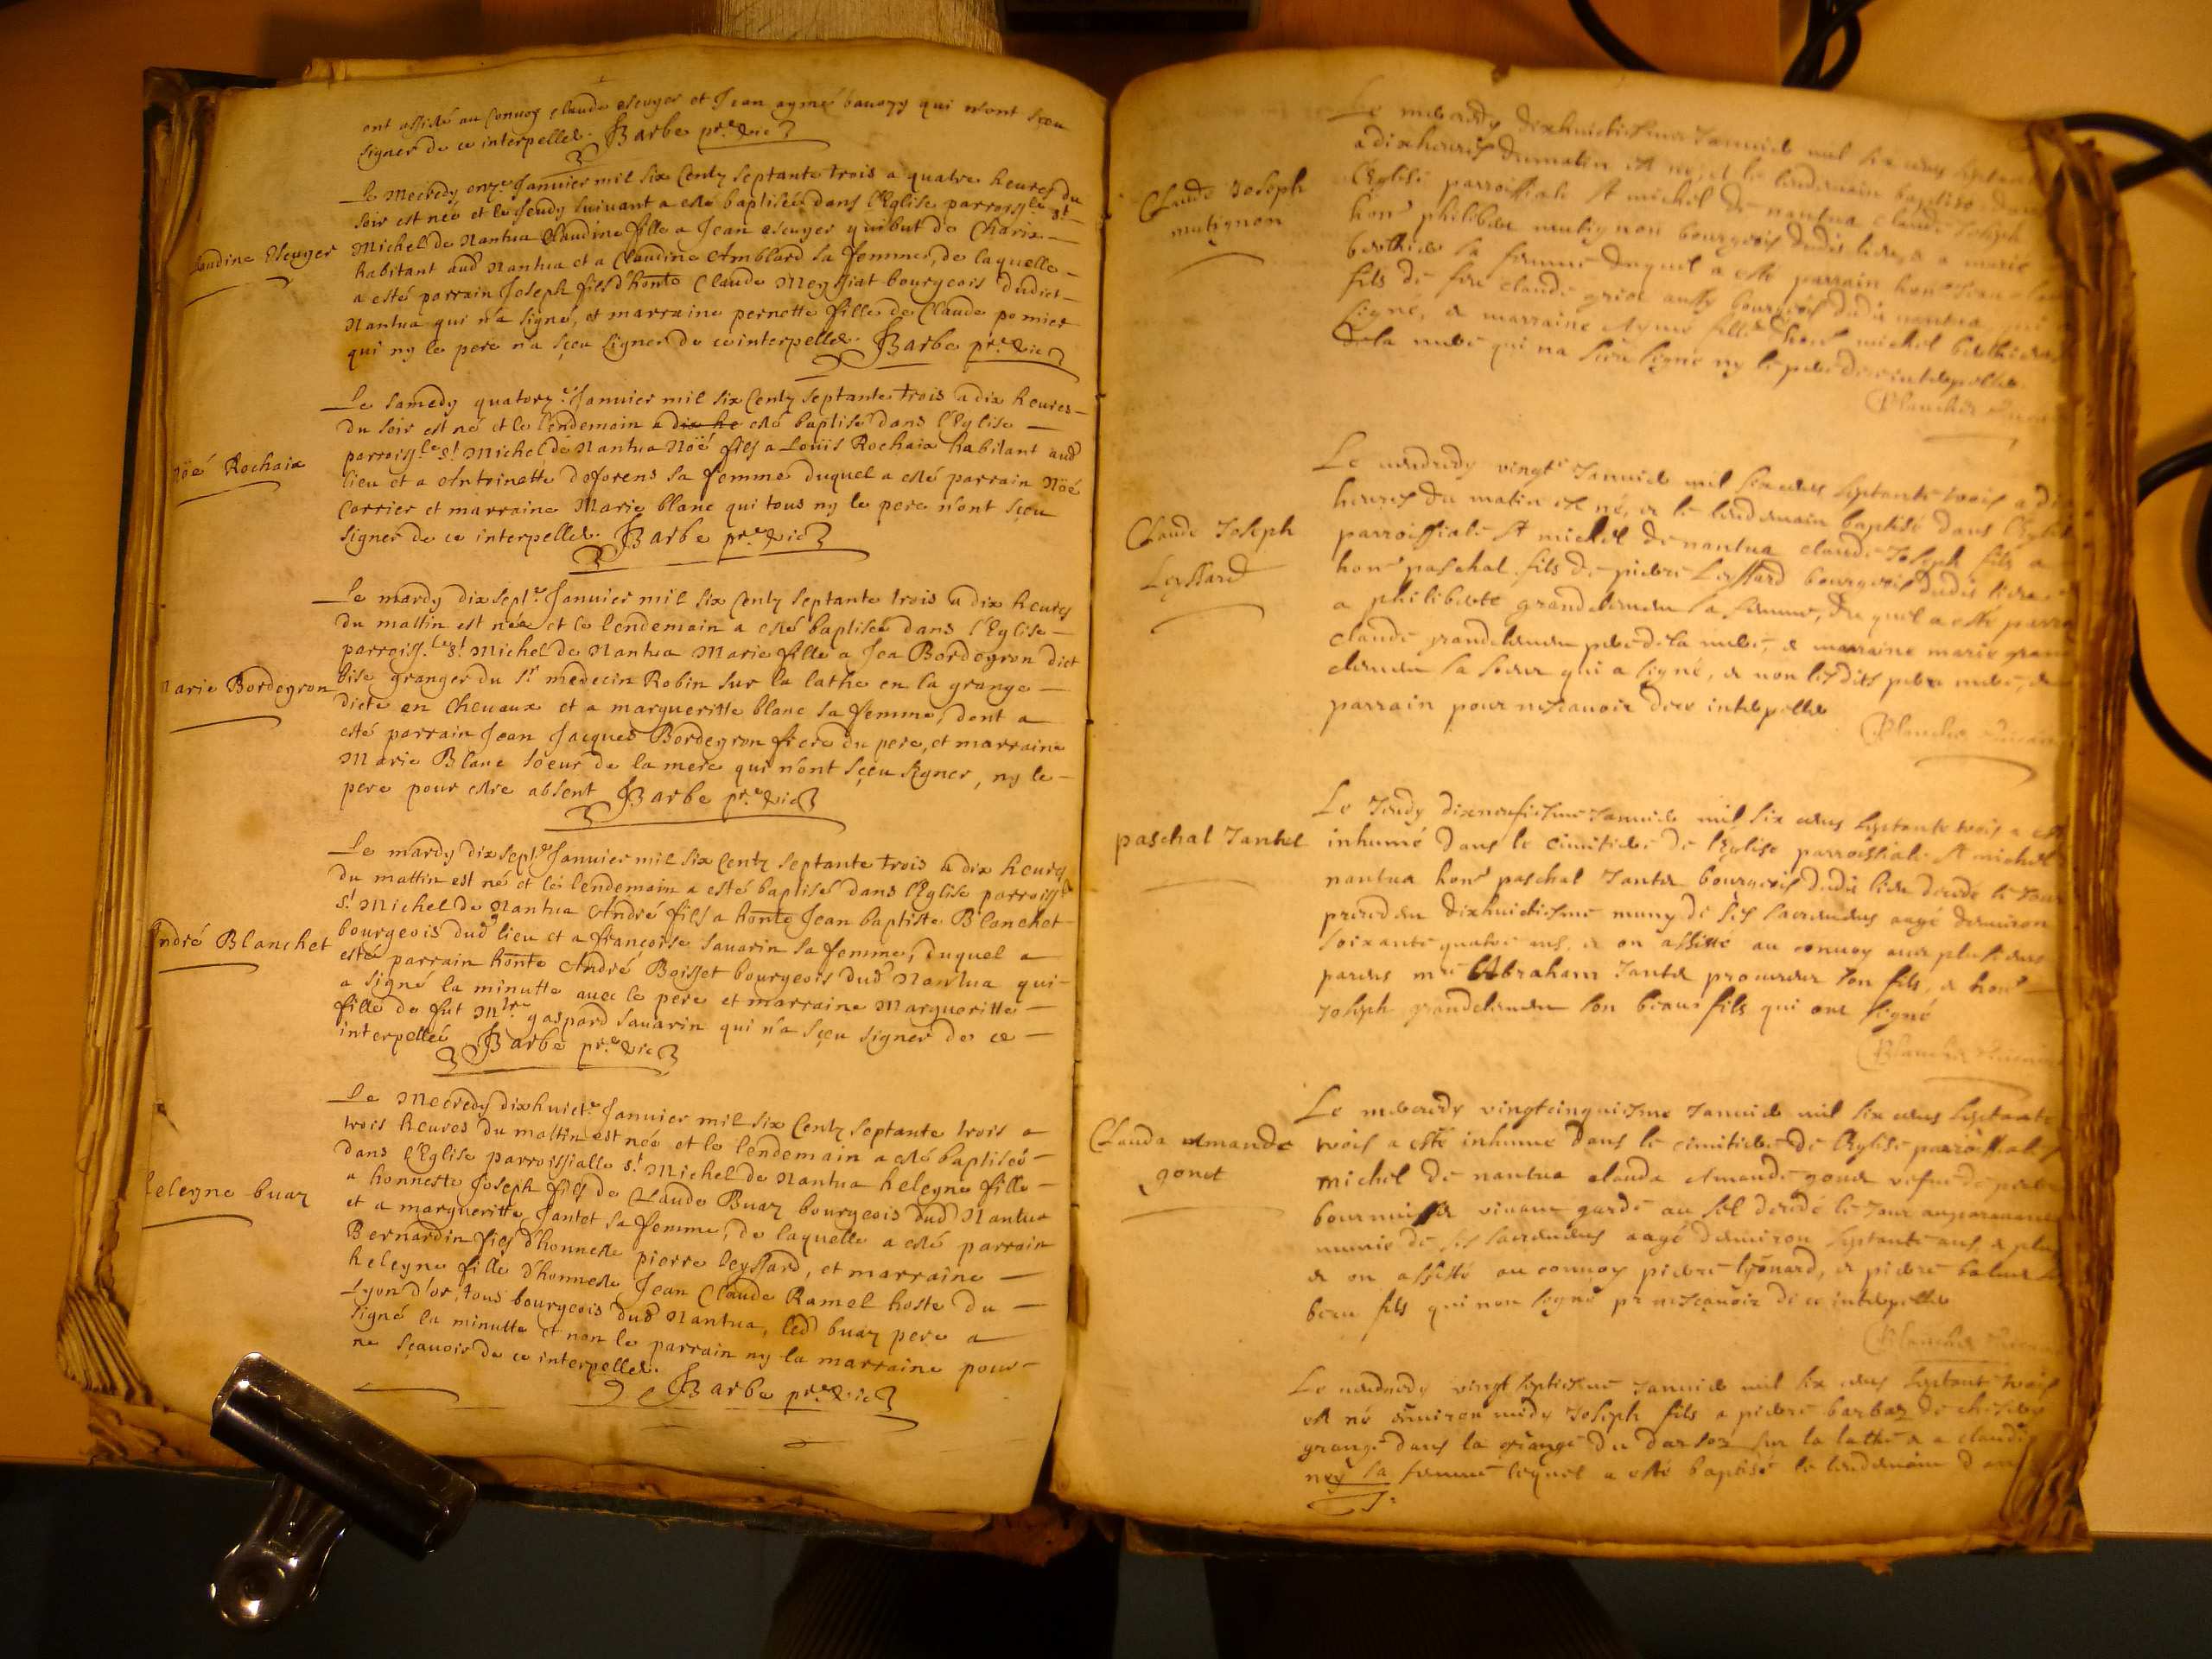 ont assisté au Convoy Claude Escuyer et Jean aymé bauozy qui n'ont sçeu
signer de ce interpellés. Barbe pr.e vic
Le Mecredy onz.e Janvier mil six Centz septante trois a quatre heures du
soir est née et le Jeudy suivant a esté baptisée dans l'Eglise parroiss.le st
Michel de Nantua Claudine fille a Jean Escuyer quibut de Charix
habitant aud Nantua et a Claudine Amblard sa femme, de laquelle
a esté parrain Joseph fils d'honte Claude Meyssiat bourgeois dudict
Nantua qui n'a signé, et marraine pernette fille de Claude pomier
qui ny le pere n'a sçeu signer de ce interpellés. Barbe pr.e vic
Claudine Escuyer
Le samedy quatorz.e Janvier mil six Centz septante trois a dix heures
du soir est né et le lendemain a dix he esté baptisé dans l'Eglise
parroiss.le st Michel de Nantua Nöé fils a Louis Rochaix habitant aud
lieu et a Antoinette deforens sa femme duquel a esté parrain Nöé
Carrier et marraine Marie blanc qui tous ny le pere n'ont sçeu
signer de ce interpellés. Barbe pr.e vic
Nöé Rochaix
Le mardy dix sept.e Janvier mil six Centz septante trois a dix heures
du mattin est née et le lendemain a esté baptisée dans l'Eglise
parroiss.le st Michel de Nantua Marie fille a Jea Bordeyron dict
bise granger du sr medecin Robin sur la lathe en la grange
dicte en Cheuaux et a margueritte blanc sa femme, dont a
esté parrain Jean Jacques Bordeyron frere du pere, et marraine
Marie Blanc soeur de la mere qui n'ont sçeu signer, ny le
pere pour estre absent Barbe pr.e vic
Marie Bordeyron
Le mardy dix sept.e Janvier mil six Centz septante trois a dix heures
du mattin est né et le lendemain a esté baptisé dans l'Eglise parroiss.le
st Michel de Nantua André fils a honte Jean baptiste Blanchet
bourgeois dud lieu et a francoise sauarin sa femme, duquel a
esté parrain honte André Boisset bourgeois dud Nantua qui
a signé la minutte auec le pere et marraine Margueritte
fille de fut Mtre gaspard sauarin qui n'a sçeu signer de ce
interpellée Barbe pr.e vic
André Blanchet
Le Mecredy dixhuict.e Janvier mil six Centz septante trois a
trois heures du mattin est née et le lendemain a esté baptisée
dans l'Eglise parroissialle st Michel de Nantua heleyne fille
a honneste Joseph fils de Claude Buaz bourgeois dud Nantua
et a margueritte Jantet sa femme, de laquelle a esté parrain
Bernardin fils d'honneste pierre leyssard, et marraine
heleyne fille d'honneste Jean Claude Ramel hoste du
Lyon d'or, tous bourgeois dud Nantua, led buaz pere a
signé la minutte et non le parrain ny la marraine pour
ne sçauoir de ce interpellés. Barbe pr.e vic
heleyne buaz
Le mercredy dixhuictiesme Januier mil six cens septante
a dix heures du matin est né, et le lendemain baptisé dans
l'Eglise parroissiale st michel de nantua claude Joseph
hon.e philibert mutignon bourgeois dudit lieu, et a marie
berthier sa femme duquel a esté parrain hon.e Jean
fils de feu claude griot aussy bourgeois dudit nantua qui a
signé, et marraine Aymé fille d'hon.e michel berthier
de la mere qui na sceu signé ny le pere de ce interpellés
Blanchet
Claude Joseph
mutignon
Le vendredy vingt.e Januier mil six cens septante trois a dix
heures du matin est né, et le lendemain baptisé dans l'Eglise
parroissiale st michel de nantua claude Joseph fils a
hon.e paschal fils de pierre Leyssard bourgeois dudit lieu et
a philiberte grandclement sa femme, duquel a esté parrain
claude grandclement pere de la mere, et marraine marie grand
clement sa soeur qui a signé, et non lesdits pere mere, et
parrain pour ne scauoir de ce interpellés
Blanchet
Claude Joseph
Leyssard
Le Jeudy dixneufiesme Januier mil six cens septante trois a esté
inhumé dans le cimitiere de l'Eglise parroissiale st michel
nantua hon.e paschal Jantet bourgeois dudit lieu decedé le Jour
precedent dixhuictiesme muny de ses sacremens aagé denuiron
soixante quatre ans, et on assisté au conuoy auec plusieurs
parens me Abraham Jantet procureur son fils, et hon.e
Joseph grandclement son beau fils qui ont signé
Blanchet
paschal Jantet
Le mercredy vingtcinquiesme Januier mil six cens septante
trois a esté inhumé dans le cimitiere de l'Eglise parroissiale st
michel de nantua clauda Amande gonet vefue de pierre
bournisset viuant garde au sel decedé le Jour auparauant
munie de ses sacremens aagé denuiron septante ans, et plus
et on assisté au conuoy pierre lyonard, et pierre
beau fils qui non signé pr ne scauoir de ce interpellés
Blanchet
Clauda Amande
gonet
Le vendredy vingt septiesme Januier mil six cens septante trois
est né enuiron midy Joseph fils a pierre barbaz de
grangé dans la grange du sur la lathe et a claudine
ney sa femme lequel a esté baptisé le lendemain dans